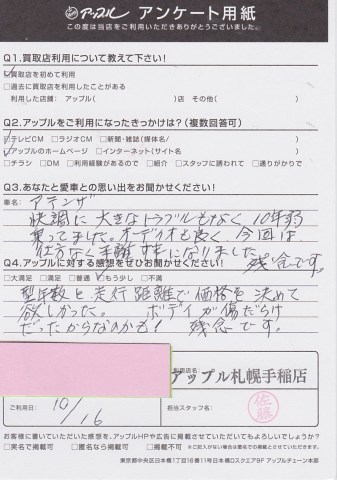 アップル アンケート用紙
この度は当店をご利用いただきありがとうございました。
Q1.買取店利用について教えて下さい!
☑買取店を初めて利用
□過去に買取店を利用したことがある
利用した店舗： アップル( )店 その他( )
Q2.アップルをご利用になったきっかけは?(複数回答可)
☑テレビCM □ラジオCM □新聞・雑誌(媒体名/ )
☑アップルのホームページ □インターネット(サイト名 )
□チラシ □DM □利用経験があるので □紹介 □スタッフに誘われて □通りがかりで
Q3.あなたと愛車との思い出をお聞かせください!
車名： アテンザ
快調に大きなトラブルもなく、10年
乗ってました。オーディオも良く、今回は
仕方なく手離す事になりました。
残念です。
Q4.アップルに対する感想をぜひお聞かせください!
□大満足 □満足 □普通 ☑もう少し □不満
型年数と走行距離で価格を決めて
欲しかった。 ボディが傷だらけ
だったからなのかも! 残念です。
アップル札幌手稲店
ご利用日： 10/16
担当スタッフ名： 佐藤
お客様に書いていただいた感想を、アップルHPや広告に掲載させていただいてもよろしいでしょうか?
□実名で掲載可 □匿名なら掲載可 □掲載不可 ※ご記入がない場合は匿名での掲載とさせていただきます。
東京都中央区日本橋1丁目16番11号日本橋Dスクエア9F アップルチェーン本部